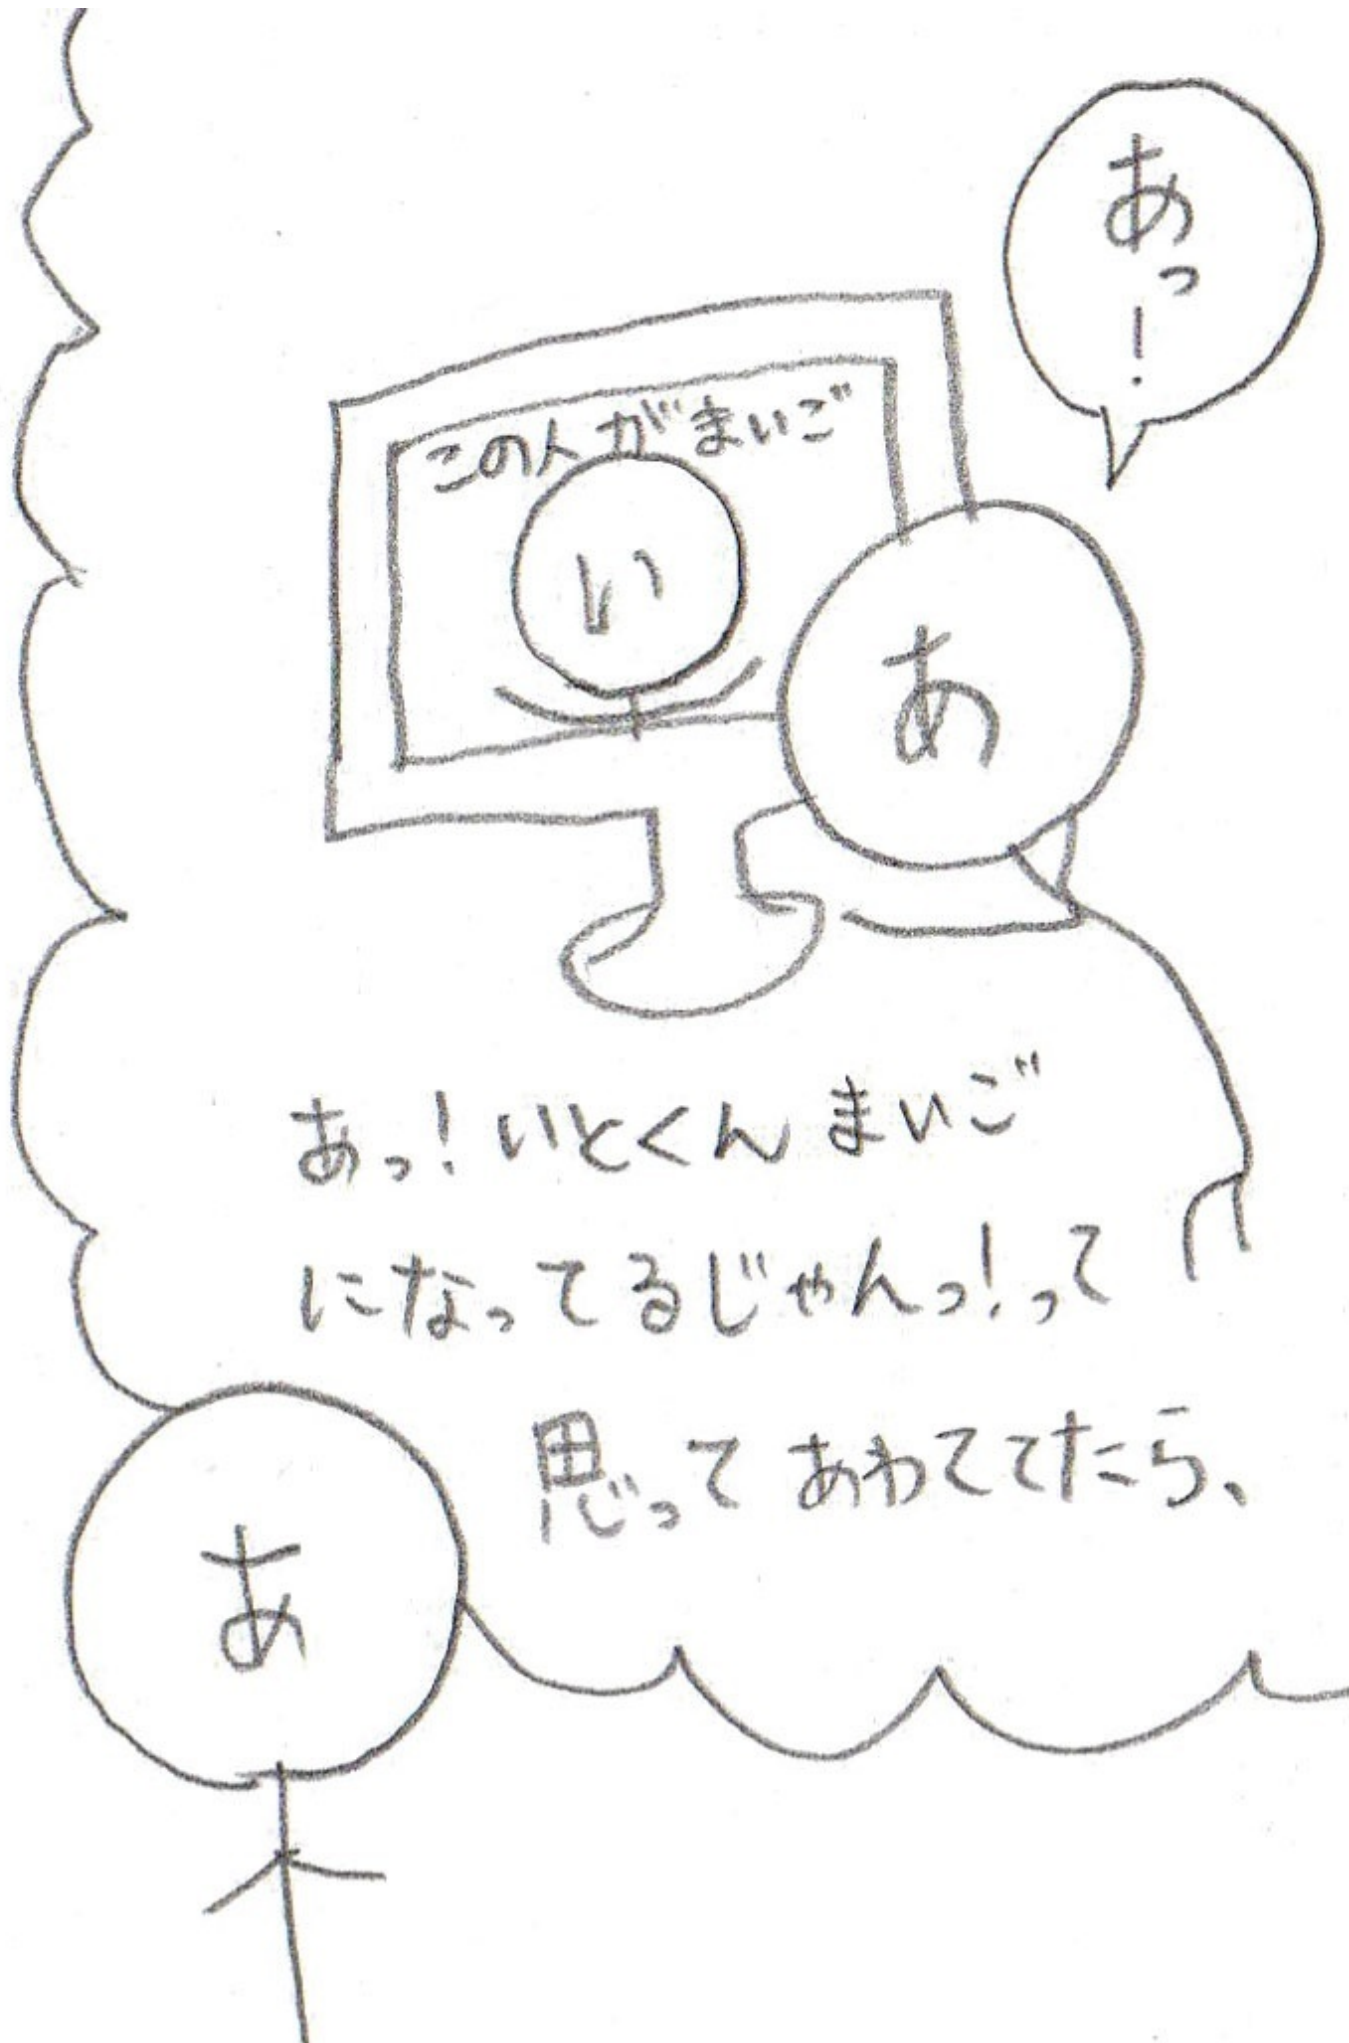 あっ!
この人がまいご
い
あ
あっ!いとくんまいご
になってるじゃんっ!って
思ってあわててたら、
あ